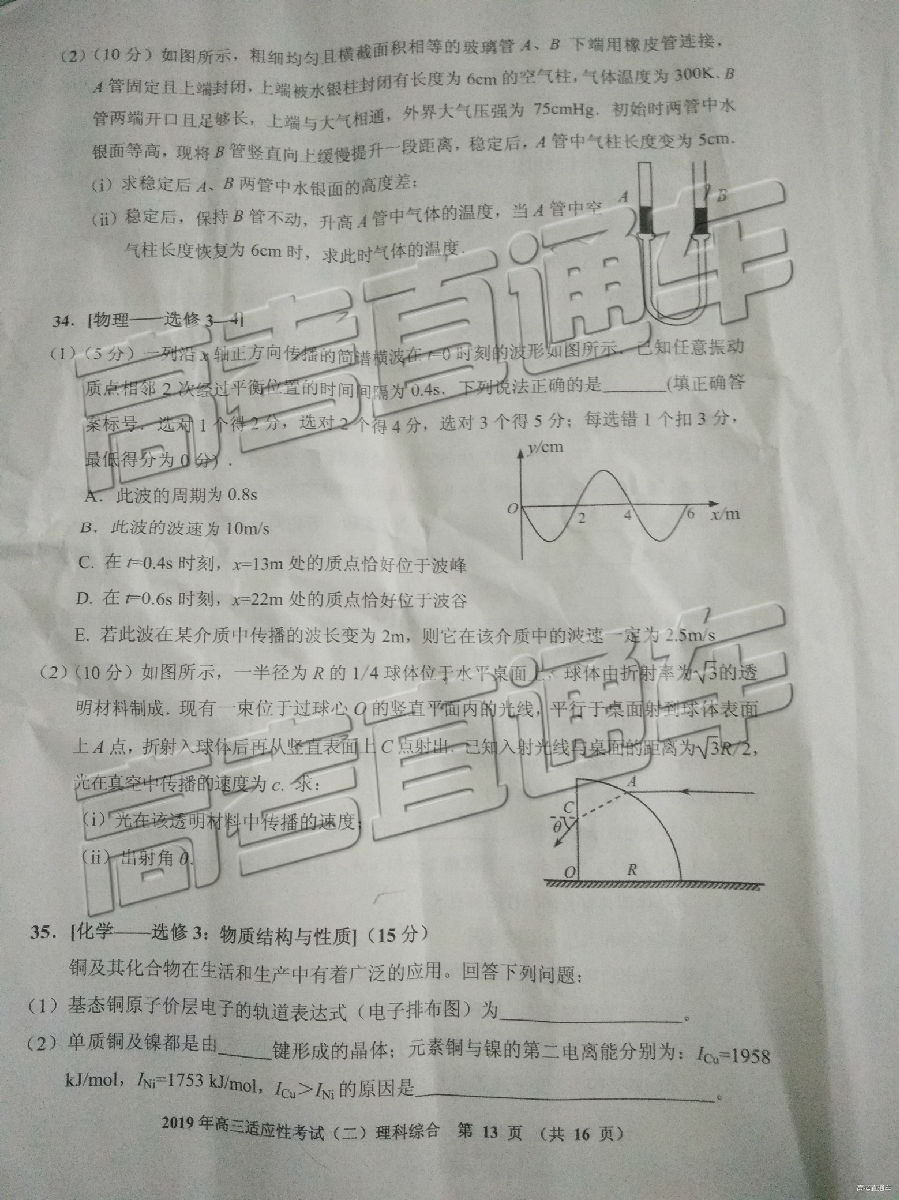 (2)(10分)如图所示，粗细均匀且横截面积相等的玻璃管A、B下端用橡皮管连接，
A管固定且上端封闭，上端被水银柱封闭有长度为6cm的空气柱，气体温度为300K. B
管两端开口且足够长，上端与大气相通，外界大气压强为75cmHg. 初始时两管中水
银面等高，现将B管竖直向上缓慢提升一段距离，稳定后，A管中气柱长度变为5cm.
(i)求稳定后A、B两管中水银面的高度差;
(ii)稳定后，保持B管不动，升高A管中气体的温度，当A管中空
气柱长度恢复为6cm时，求此时气体的温度.
A B
34. [物理——选修3—4]
(1)(5分)一列沿x轴正方向传播的简谐横波在t=0时刻的波形如图所示. 已知任意振动
质点相邻2次经过平衡位置的时间间隔为0.4s. 下列说法正确的是______(填正确答
案标号. 选对1个得2分，选对2个得4分，选对3个得5分；每选错1个扣3分，
最低得分为0分).
y/cm
O 2 4 6 x/m
A. 此波的周期为0.8s
B. 此波的波速为10m/s
C. 在t=0.4s时刻，x=13m处的质点恰好位于波峰
D. 在t=0.6s时刻，x=22m处的质点恰好位于波谷
E. 若此波在某介质中传播的波长变为2m，则它在该介质中的波速一定为2.5m/s
(2)(10分)如图所示，一半径为R的1/4球体位于水平桌面上，球体由折射率为√3的透
明材料制成. 现有一束位于过球心O的竖直平面内的光线，平行于桌面射到球体表面
上A点，折射入球体后再从竖直表面上C点射出. 已知入射光线与桌面的距离为√3R/2，
光在真空中传播的速度为c. 求:
(i)光在该透明材料中传播的速度;
(ii)出射角θ.
A
C
θ
O R
35. [化学——选修3：物质结构与性质](15分)
铜及其化合物在生活和生产中有着广泛的应用。回答下列问题：
(1)基态铜原子价层电子的轨道表达式（电子排布图）为________________。
(2)单质铜及镍都是由_____键形成的晶体；元素铜与镍的第二电离能分别为：ICu=1958
kJ/mol，INi=1753 kJ/mol，ICu＞INi的原因是__________________________。
2019年高三适应性考试（二）理科综合 第 13 页 （共 16 页）
高考直通车
高考直通车
高考直通车